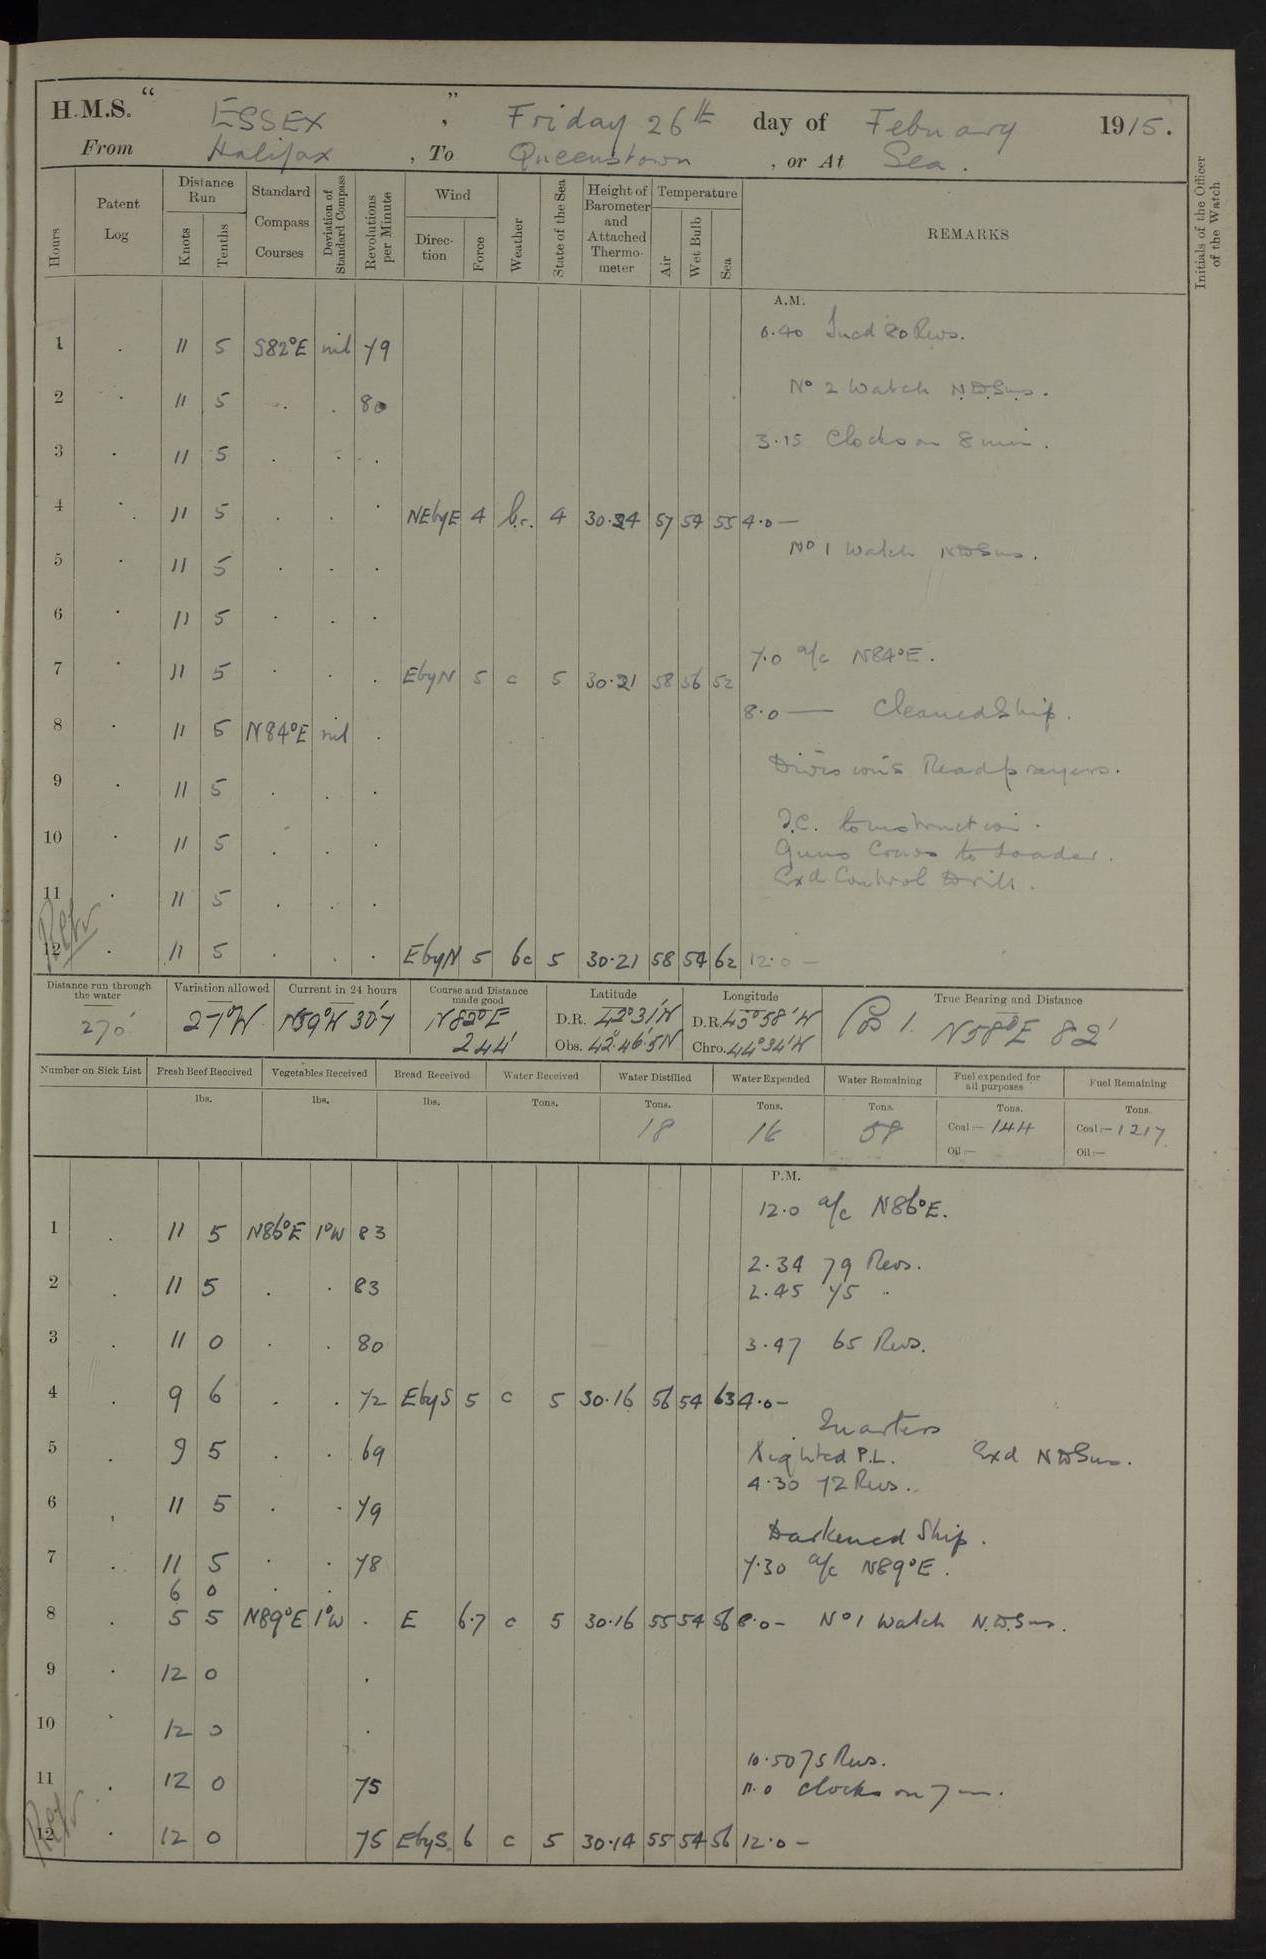 H.M.S. “ ESSEX ” , Friday 26th day of Febuary 1915.
From Halifax , To Queenstown , or At Sea .
Hours Patent Log Distance Run Knots Tenths Standard Compass Courses Deviation of Standard Compass Revolutions per Minute Wind Direc-tion Force Weather State of the Sea Height of Barometer and Attached Thermo-meter Temperature Air Wet Bulb Sea REMARKS Initials of the Officer of the Watch
A.M.
0.40 Incd 80 Revs.
1 . 11 5 S82°E nil 79
No 2 Watch N.D.Guns.
2 . 11 5 . . 80
3.15 Clocks on 8 min.
3 . 11 5 . . .
4 . 11 5 . . . NEbyE 4 b.c. 4 30.24 57 54 55 4.0 —
No 1 Watch NDGuns.
5 11 5 . . .
6 . 11 5 . . .
7.0 a/c N84°E.
7 . 11 5 . . . EbyN 5 c 5 30.21 58 56 52
8.0 — Cleaned Ship.
8 . 11 5 N84°E nil .
Divisions Read prayers.
9 . 11 5 . . .
T.C. to instruction.
10 . 11 5 . . .
Guns Crews to Loader.
Exd Control Drill.
11 . 11 5 . . .
12 . 11 5 . . . EbyN 5 bc 5 30.21 58 54 62 12.0 —
Distance run through the water Variation allowed Current in 24 hours Course and Distance made good Latitude Longitude True Bearing and Distance
270' 27°W N59°W 30'7 N82°E 244' D.R. 42°31'N D.R. 45°58'W N58°E 82'
Obs. 42°46'.5N Chro. 44°34'W
Number on Sick List Fresh Beef Received Vegetables Received Bread Received Water Received Water Distilled Water Expended Water Remaining Fuel expended for all purposes Fuel Remaining
lbs. lbs. lbs. Tons. Tons. Tons. Tons. Tons. Tons.
18 16 59 Coal :— 144 Coal :— 1217
Oil :— Oil :—
P.M.
12.0 a/c N86°E.
1 . 11 5 N86°E 1°W 83
2.34 79 Revs.
2 . 11 5 . . 83
2.45 75 "
3 . 11 0 . . 80 3.47 65 Revs.
4 . 9 6 . . 72 EbyS 5 c 5 30.16 56 54 63 4.0 —
Quarters
5 . 9 5 . . 69 Sighted P.L. Exd NDGuns.
4.30 72 Revs.
6 . 11 5 . . 79
Darkened Ship.
7 . 11 5 . . 78 7.30 a/c N89°E.
6 0 . .
8 . 5 5 N89°E 1°W . E 6.7 c 5 30.16 55 54 56 8.0 — No 1 Watch N.D.Guns.
9 . 12 0 .
10 . 12 0 .
10.50 75 Revs.
11 . 12 0 75 11.0 Clocks on 7 m.
12 . 12 0 75 EbyS 6 c 5 30.14 55 54 56 12.0 —